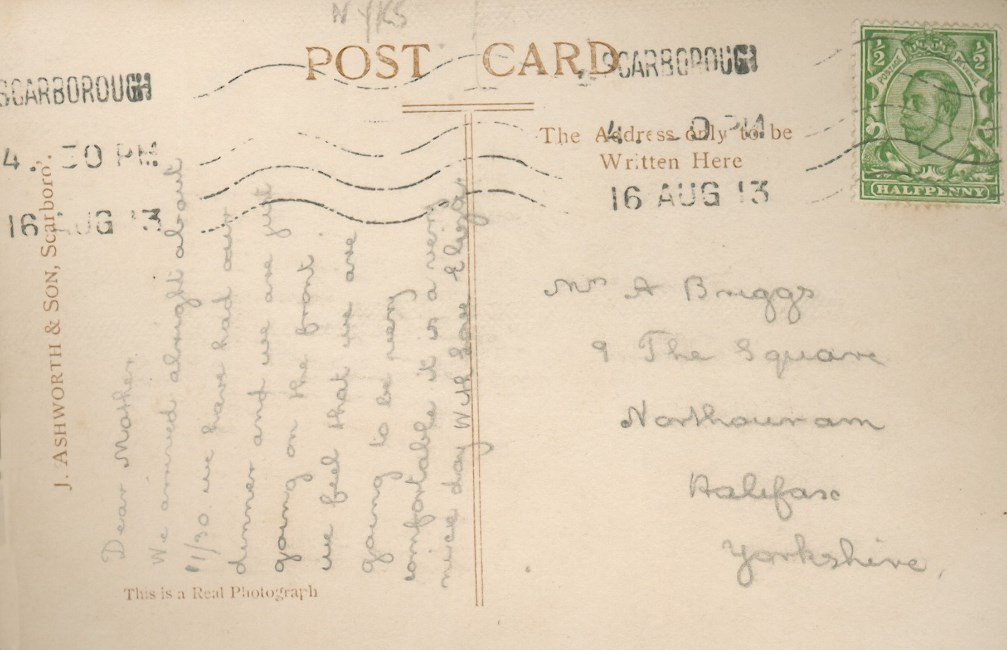 N YKS
POST CARD
SCARBOROUGH
4. 30 PM
16 AUG 13
SCARBOROUGH
4. 0 PM
16 AUG 13
½ ½
POSTAGE
HALFPENNY
The Address only to be
Written Here
J. ASHWORTH & SON, Scarboro'.
Dear Mother
We arrived alright about
11/30 we have had our
dinner and we are just
going on the front
we feel that we are
going to be very
comfortable it is a very
nice day With Love Eliza
This is a Real Photograph
Mrs A Briggs
9 The Square
Northowram
Halifax
Yorkshire,